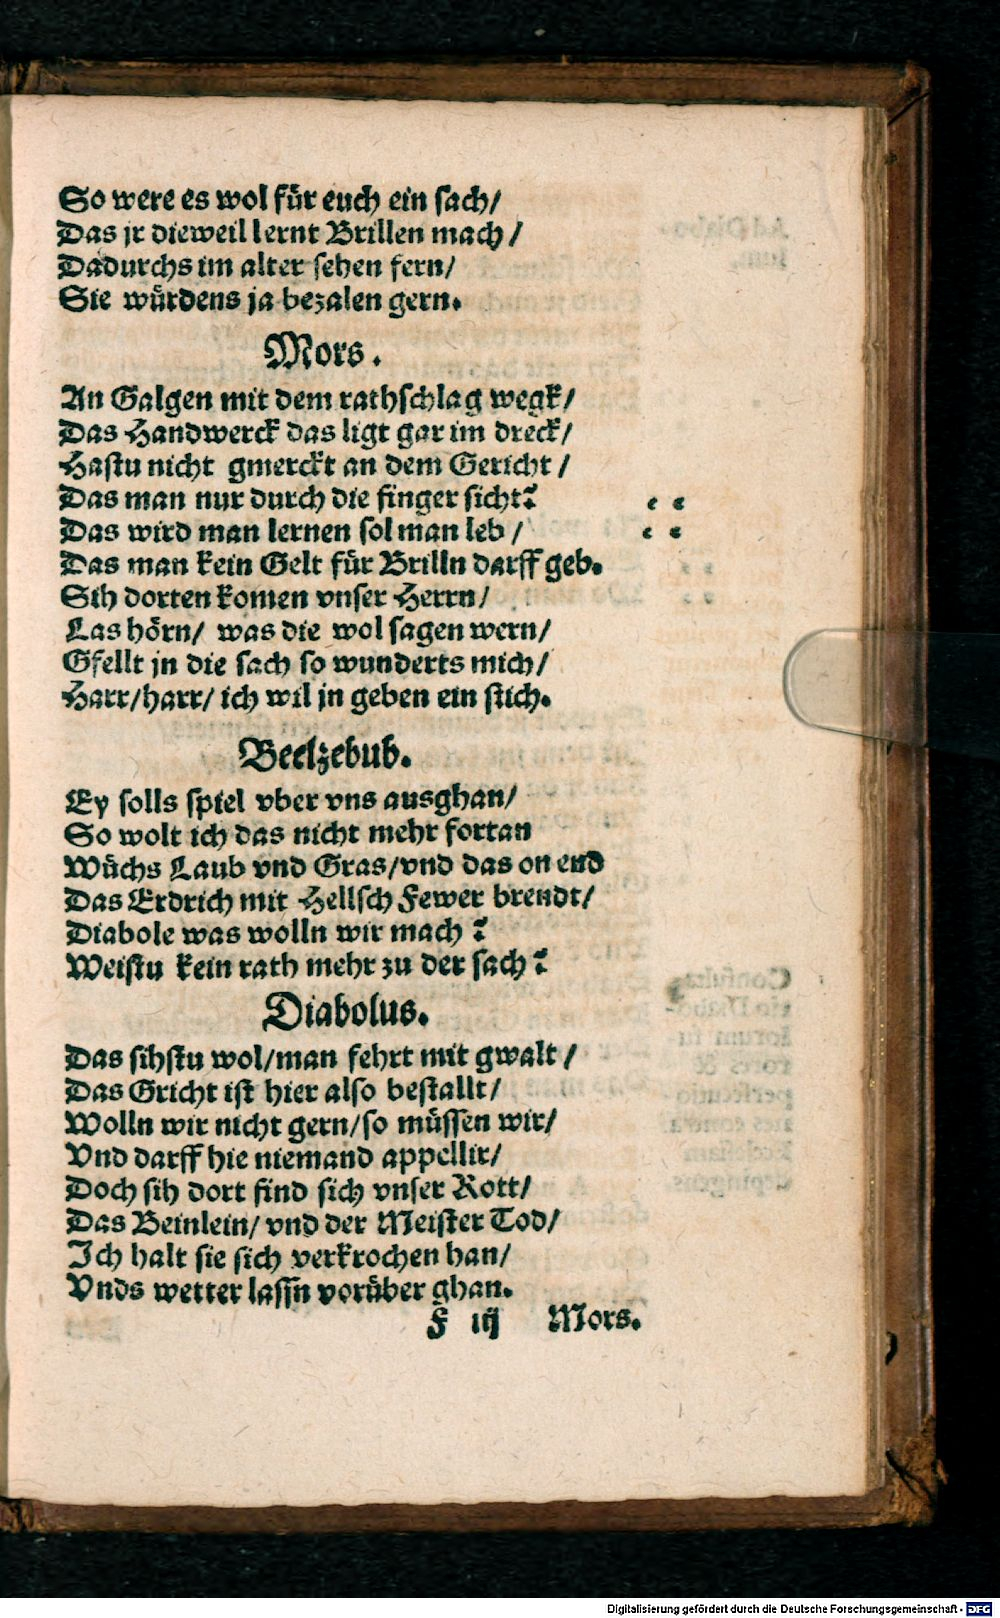 So were es wol für euch ein sach/
Das jr dieweil lernt Brillen mach/
Dadurchs im alter sehen fern/
Sie würdens ja bezalen gern.
Mors.
An Galgen mit dem rathschlag wegk/
Das Handwerck das ligt gar im dreck/
Hastu nicht gmerckt an dem Gericht/
Das man nur durch die finger sicht?
Das wird man lernen sol man leb/
Das man kein Gelt für Brilln darff geb.
Sih dorten komen vnser Herrn/
Las hörn/ was die wol sagen wern/
Gfellt jn die sach so wunderts mich/
Harr/harr/ ich wil jn geben ein stich.
Beelzebub.
Ey solls spiel vber vns ausghan/
So wolt ich das nicht mehr fortan
Wüchs Laub vnd Gras/vnd das on end
Das Erdrich mit Hellsch Fewer brendt/
Diabole was wolln wir mach?
Weistu kein rath mehr zu der sach?
Diabolus.
Das sihstu wol/man fehrt mit gwalt/
Das Gricht ist hier also bestallt/
Wolln wir nicht gern/so müssen wir/
Vnd darff hie niemand appellir/
Doch sih dort find sich vnser Rott/
Das Beinlein/ vnd der Meister Tod/
Ich halt sie sich verkrochen han/
Vnds wetter lassn vorüber ghan.
F iij Mors.
Digitalisierung gefördert durch die Deutsche Forschungsgemeinschaft - DFG